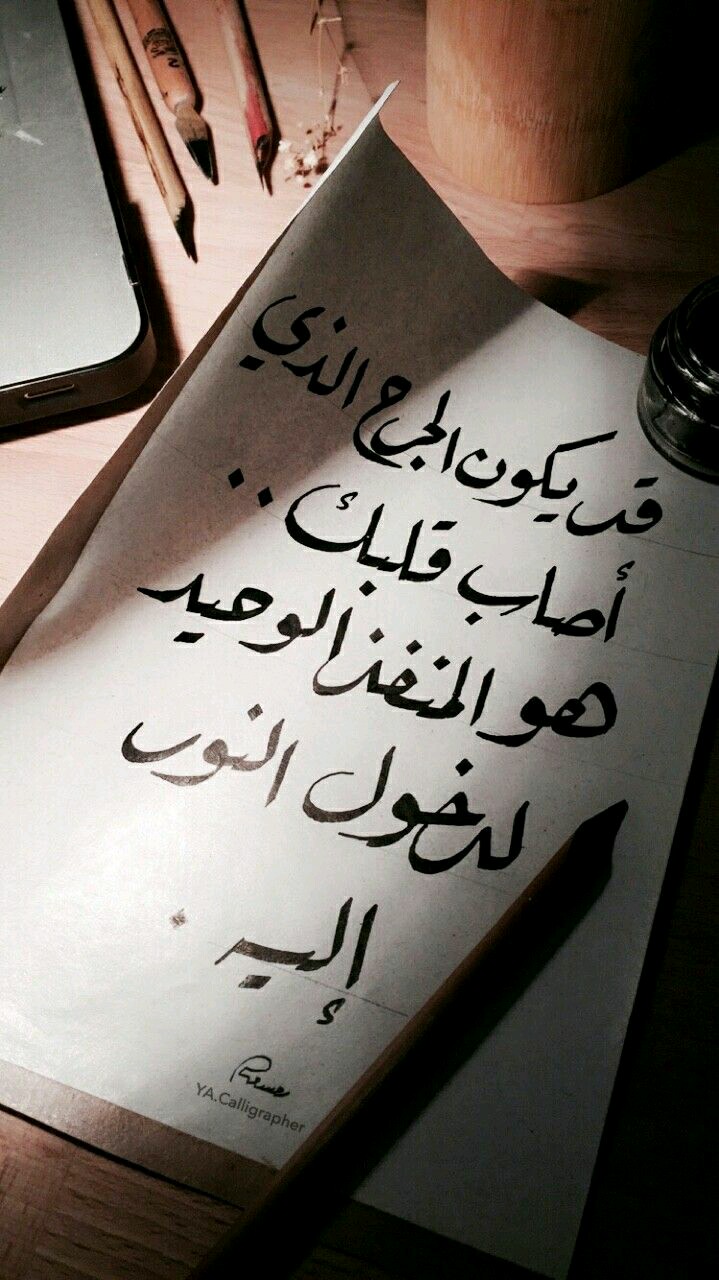 قد يكون الجرح الذي
أصاب قلبك ..
هو المنفذ الوحيد
لدخول النور
إليه .
YA.Calligrapher